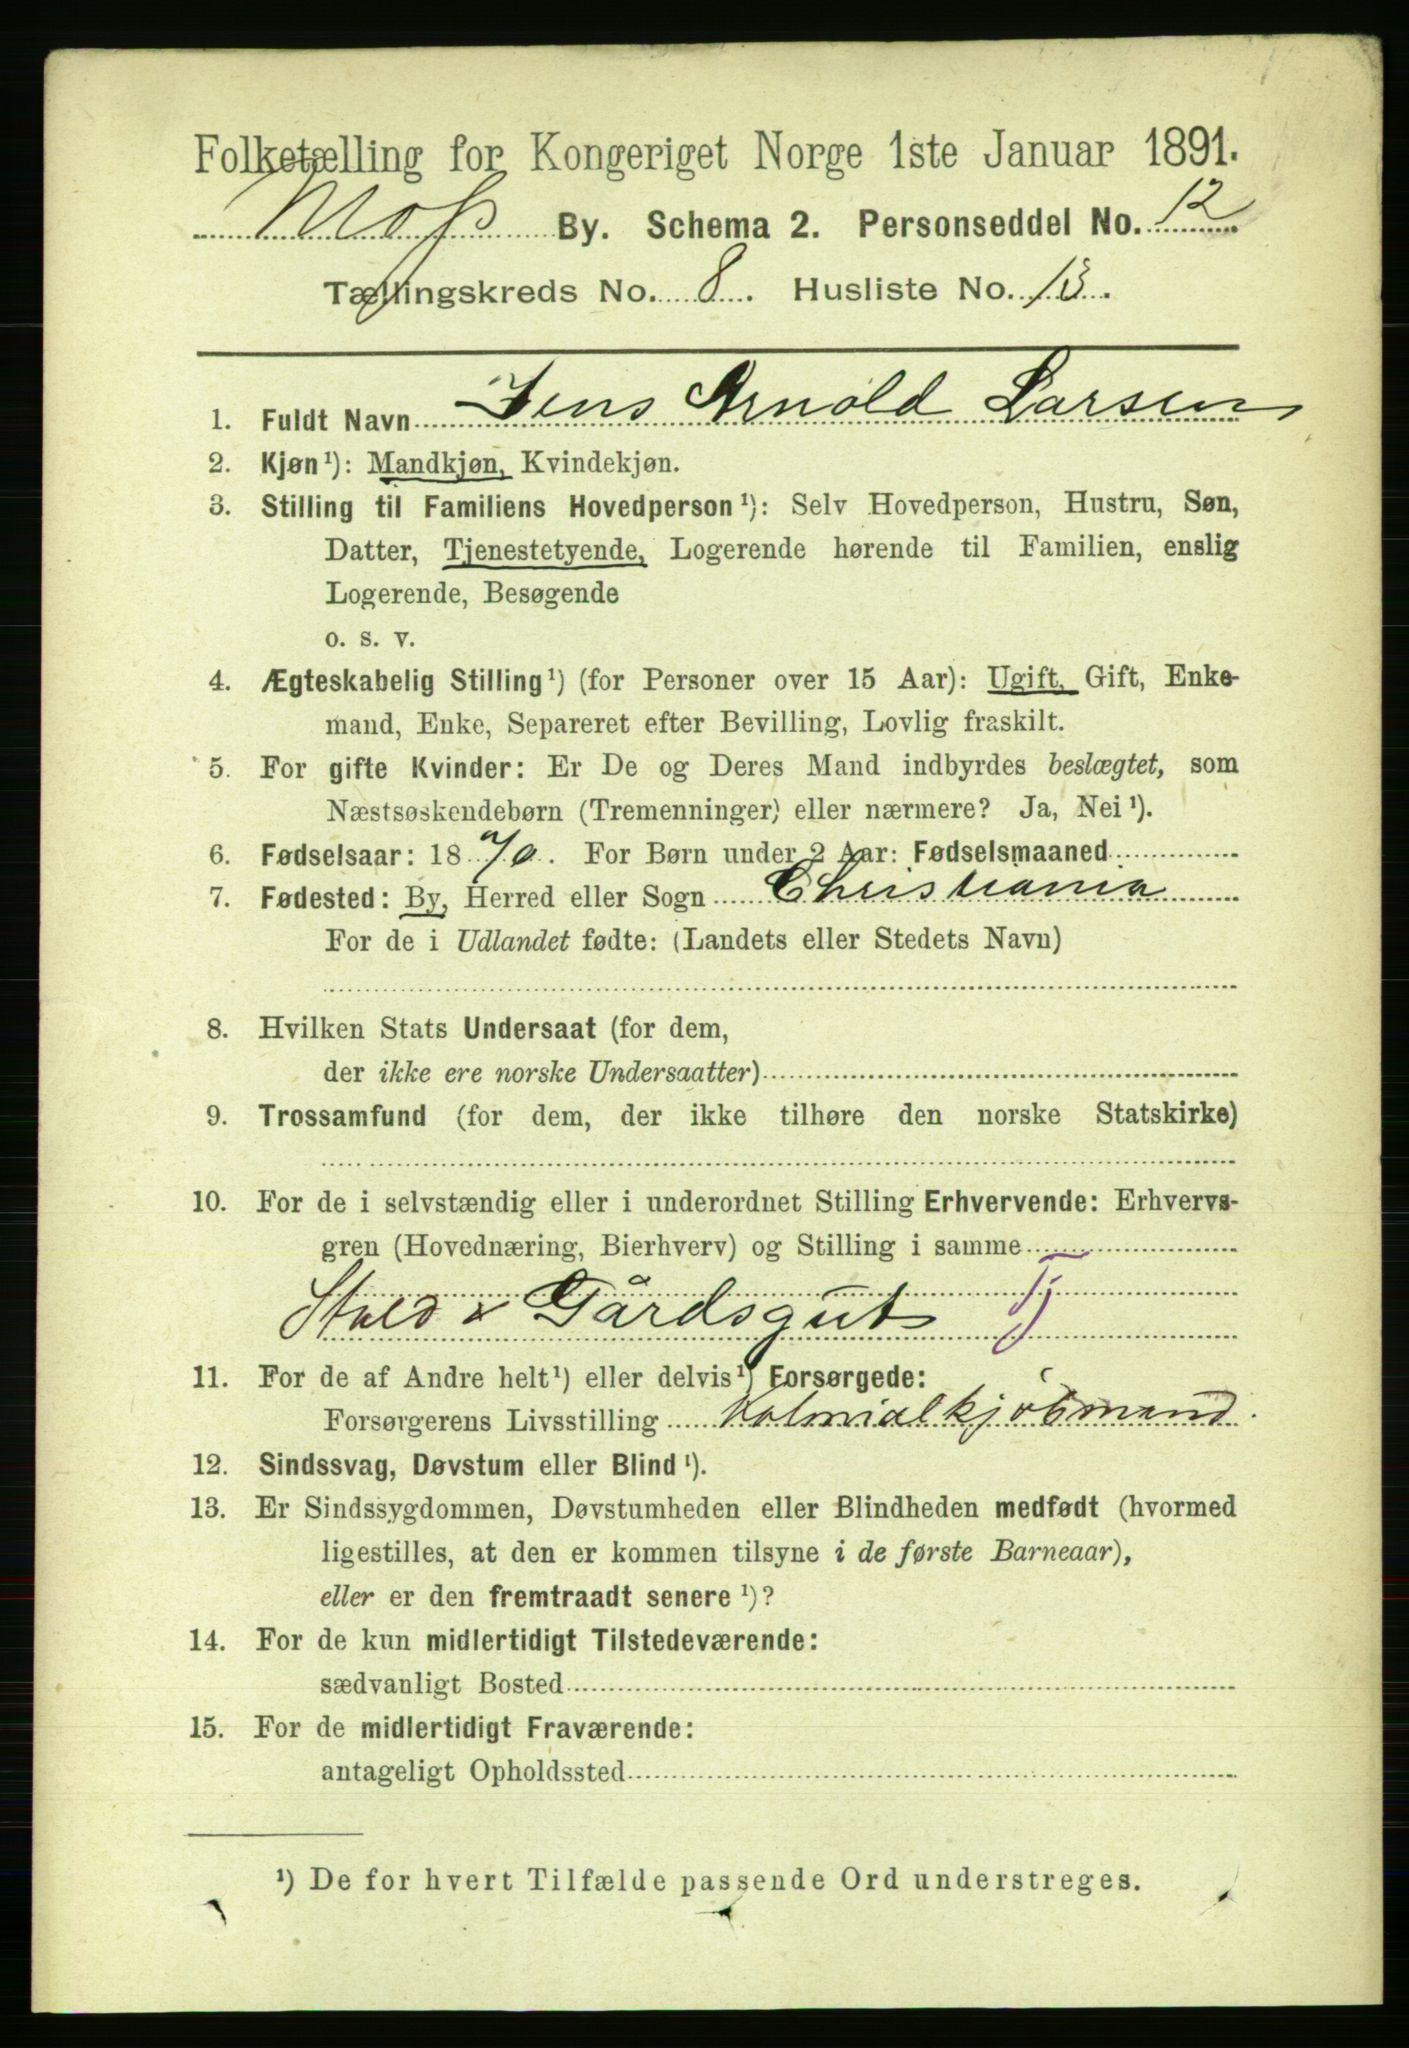 Folketælling for Kongeriget Norge 1ste Januar 1891.
Moss By. Schema 2. Personseddel No. 12
Tællingskreds No. 8. Husliste No. 13.
1. Fuldt Navn Jens Arnold Larsen
2. Kjøn¹): Mandkjøn, Kvindekjøn.
3. Stilling til Familiens Hovedperson¹): Selv Hovedperson, Hustru, Søn,
Datter, Tjenestetyende, Logerende hørende til Familien, enslig
Logerende, Besøgende
o. s. v.
4. Ægteskabelig Stilling¹) (for Personer over 15 Aar): Ugift, Gift, Enke-
mand, Enke, Separeret efter Bevilling, Lovlig fraskilt.
5. For gifte Kvinder: Er De og Deres Mand indbyrdes beslægtet, som
Næstsøskendebørn (Tremenninger) eller nærmere? Ja, Nei¹).
6. Fødselsaar: 1870. For Børn under 2 Aar: Fødselsmaaned
7. Fødested: By, Herred eller Sogn Christiania
For de i Udlandet fødte: (Landets eller Stedets Navn)
8. Hvilken Stats Undersaat (for dem,
der ikke ere norske Undersaatter)
9. Trossamfund (for dem, der ikke tilhøre den norske Statskirke)
10. For de i selvstændig eller i underordnet Stilling Erhvervende: Erhvervs-
gren (Hovednæring, Bierhverv) og Stilling i samme
Stald & Gårdsgut Tj
11. For de af Andre helt¹) eller delvis¹) Forsørgede:
Forsørgerens Livsstilling Kolonialkjöbmand.
12. Sindssvag, Døvstum eller Blind¹).
13. Er Sindssygdommen, Døvstumheden eller Blindheden medfødt (hvormed
ligestilles, at den er kommen tilsyne i de første Barneaar),
eller er den fremtraadt senere¹)?
14. For de kun midlertidigt Tilstedeværende:
sædvanligt Bosted
15. For de midlertidigt Fraværende:
antageligt Opholdssted
¹) De for hvert Tilfælde passende Ord understreges.